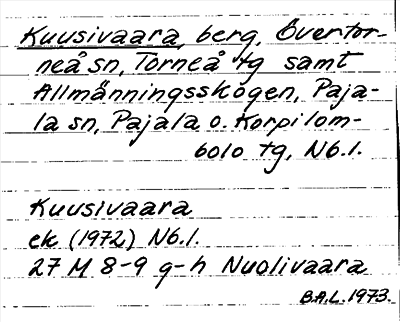 Kuusivaara, berg, Övertor-
neå sn, Torneå tg samt
Allmänningsskogen, Paja-
la sn, Pajala o. Korpilom-
bolo tg, Nb.l.
Kuusivaara
ek (1972) Nb.l.
27 M 8-9 g-h Nuolivaara
B.A.L. 1973.